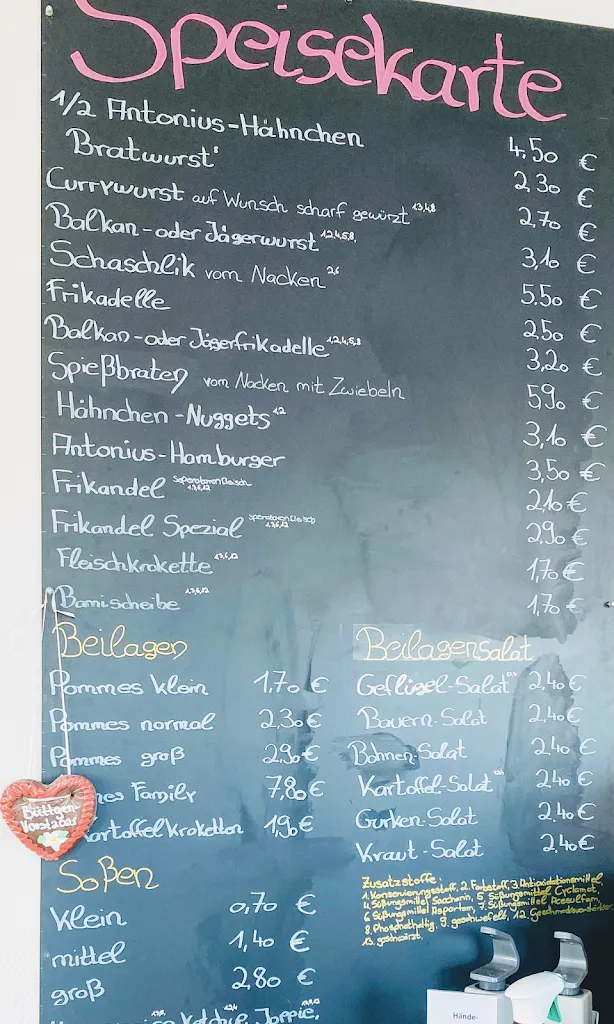 Speisekarte
1/2 Antonius-Hähnchen 4.50 €
Bratwurst⁸ 2,30 €
Currywurst auf Wunsch scharf gewürzt 1,3,4,8 2,70 €
Balkan- oder Jägerwurst 1,2,4,5,8, 3,10 €
Schaschlik vom Nacken 2,6 5.50 €
Frikadelle 2,50 €
Balkan- oder Jägerfrikadelle 1,2,4,5,8 3,20 €
Spießbraten vom Nacken mit Zwiebeln 5,90 €
Hähnchen-Nuggets 12 3,10 €
Antonius-Hamburger 3,50 €
Frikandel 2,10 €
Frikandel Spezial 2,90 €
Fleischkrokette 1,70 €
Bamischeibe 1,70 €
Beilagen
Pommes klein 1,70 €
Pommes normal 2,30 €
Pommes groß 2,90 €
mes Family 7,80 €
Kartoffelkroketten 1,90 €
Büttgen-
Vorst
Beilagensalat
Geflügel-Salat 2,40 €
Bauern-Salat 2,40 €
Bohnen-Salat 2,40 €
Kartoffel-Salat 2,40 €
Gurken-Salat 2,40 €
Kraut-Salat 2,40 €
Soßen
klein 0,70 €
mittel 1,40 €
groß 2,80 €
Ketchup, Joppie,
Zusatzstoffe:
1. Konservierungsstoff, 2. Farbstoff, 3. Antioxidationsmittel
4. Süßungsmittel Saccharin, 5. Süßungsmittel Cyclamat,
6. Süßungsmittel Aspartam, 7. Süßungsmittel Acesulfam,
8. Phosphathaltig, 9. geschwefelt, 12. Geschmacksverstärker
13. geschwärzt.
Hände-